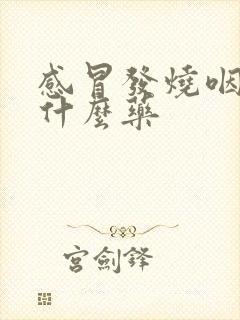 感冒發燒咽
什麼藥
宮劍鋒